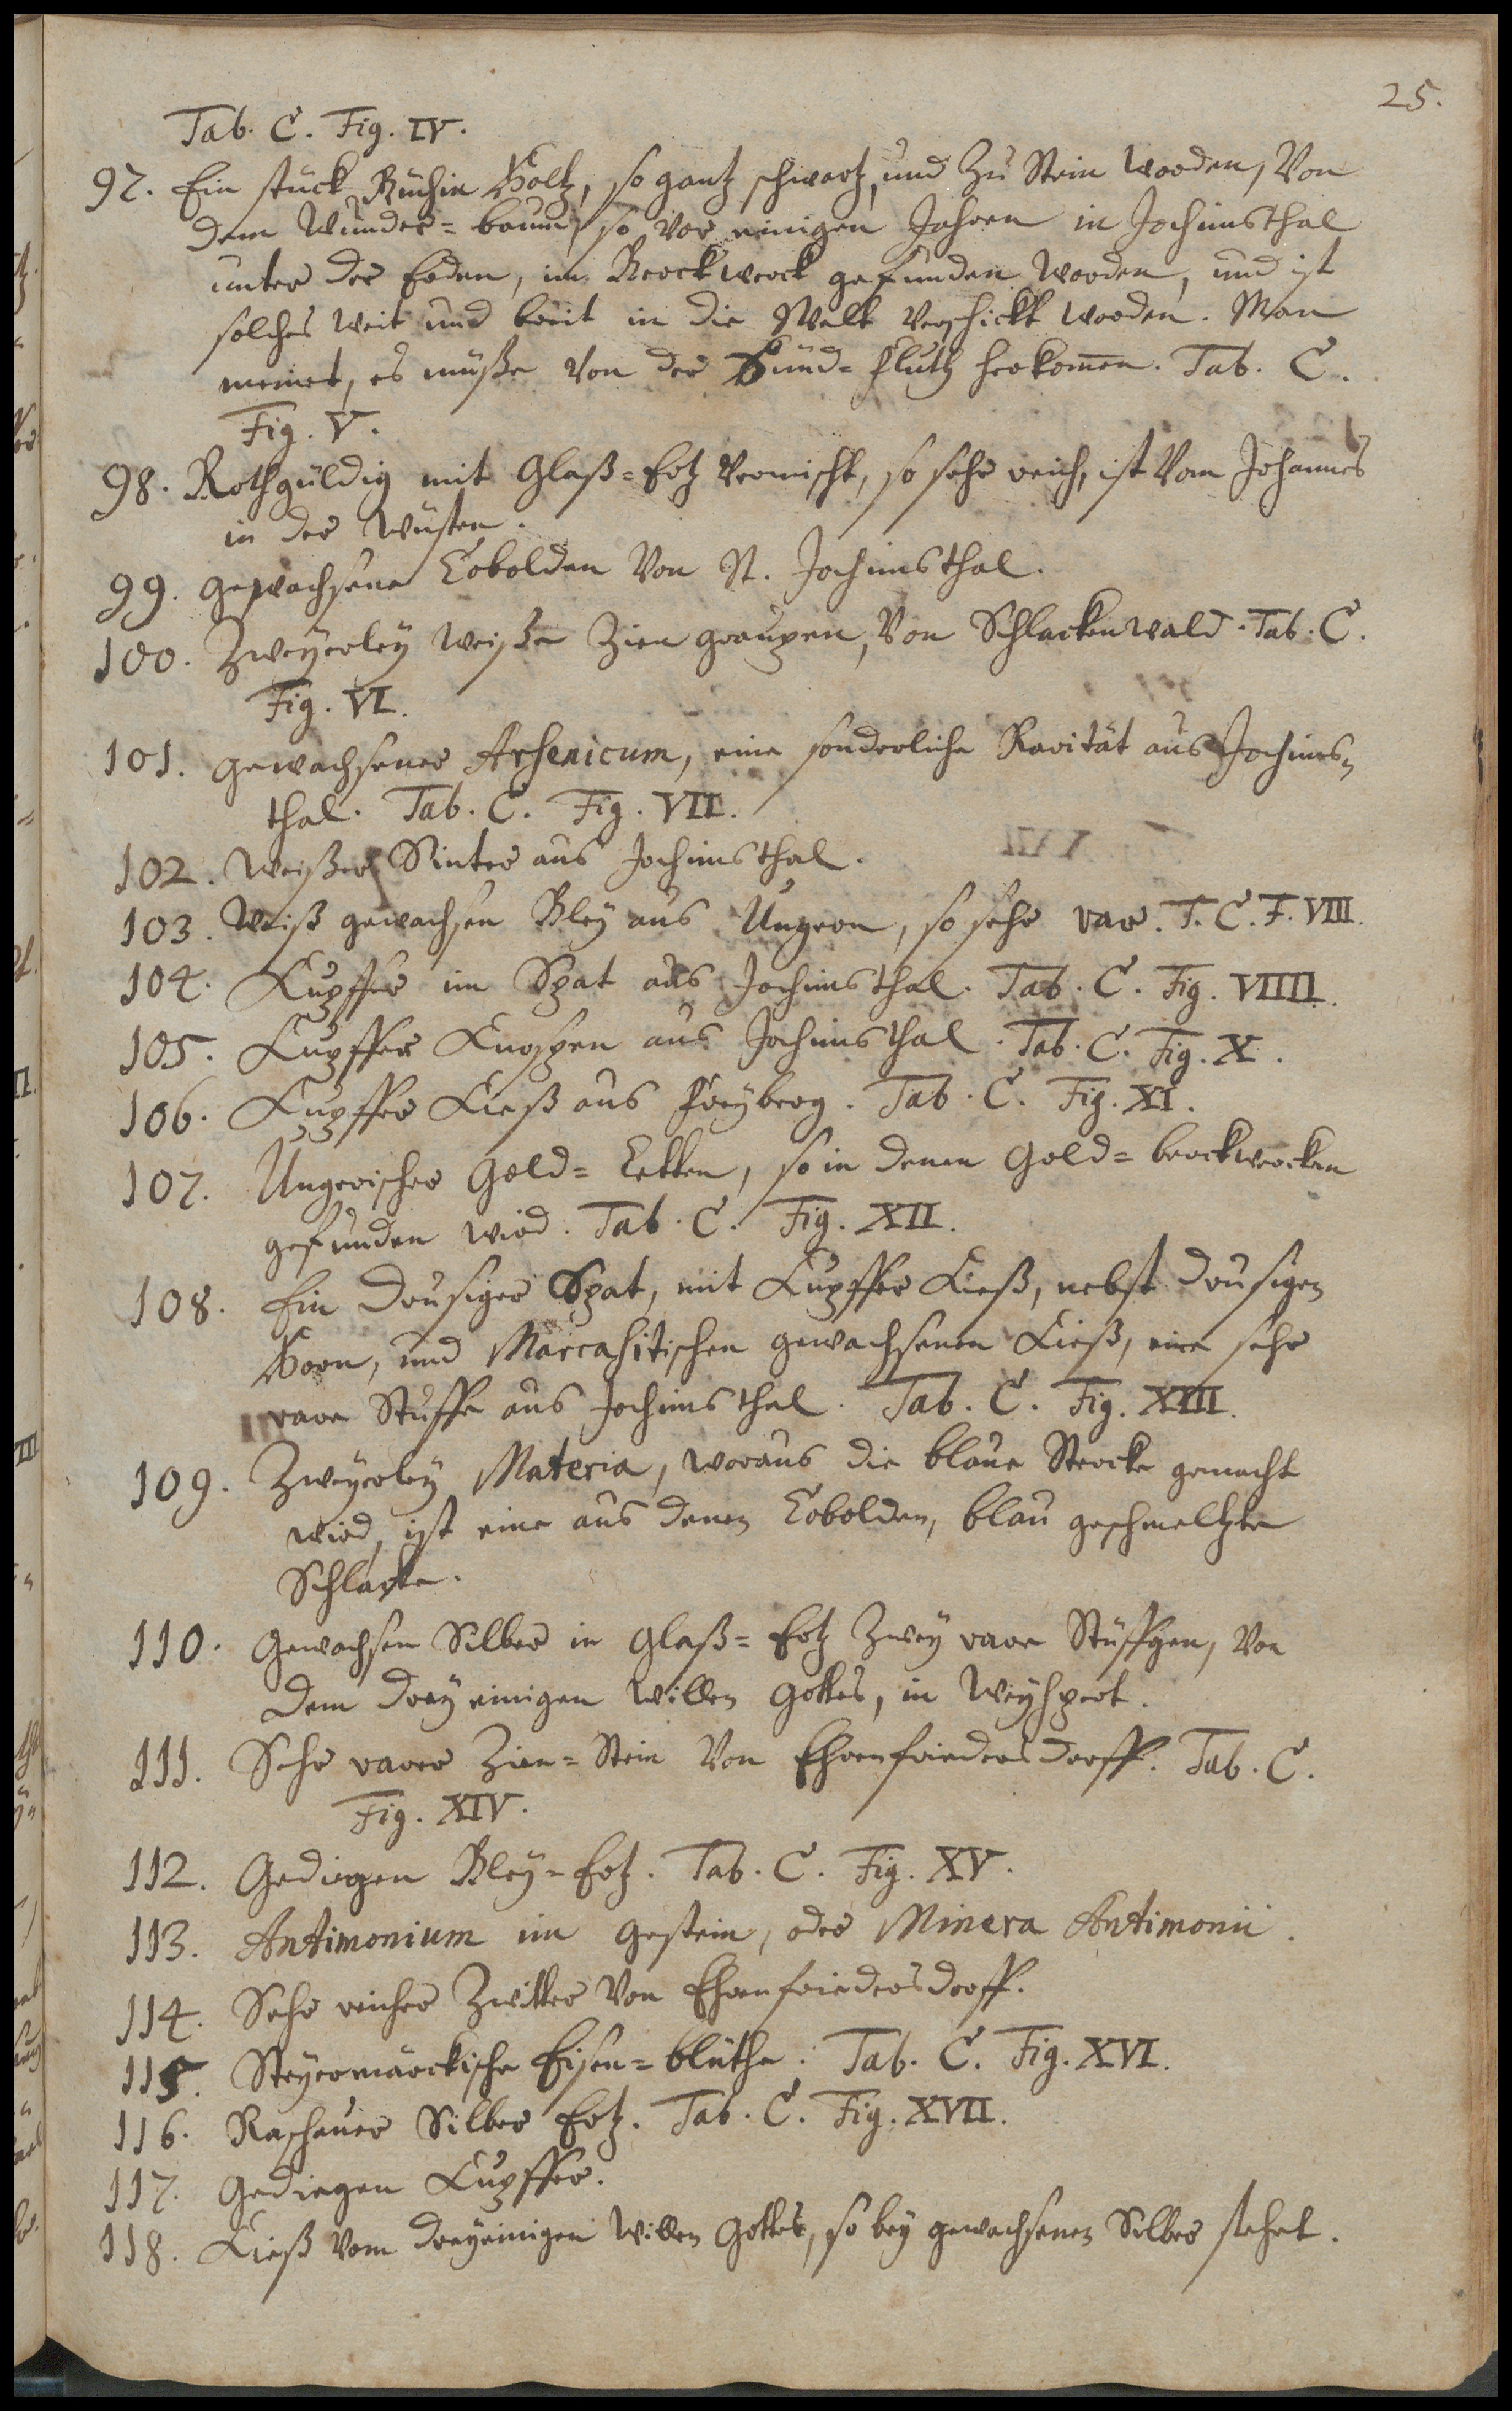 25.
Tab. C. Fig. IV.
97. Ein stück Büchin Holtz, so gantz schwartz, und zu Stein worden, Von
dem Wunder=baum, so vor einigen Jahren in Jochimsthal
unter der Erden, im Berckwerck gefunden worden, und ist
solches weit und breit in die Welt verschickt worden. Man
meinet, es müße von der Sünd=Fluth herkom̄en. Tab. C.
Fig. V.
98. Rothgüldig mit Glaß=Ertz vermischt, so sehr reich, ist vom Johannes
in der Wüsten.
99. gewachsene Cobolden von St. Jochimsthal.
100. Zweyerley weiße Zien graupen, Von Schlackenwald. Tab. C.
Fig. VI.
101. gewachsener Arsenicum, eine sonderliche Rarität aus Jochims=
thal. Tab. C. Fig. VII.
102. Weißer Sinter aus Jochimsthal.
103. Weiß gewachsen Bley aus Ungern, so sehr rar. T. C. F. VIII.
104. Kupffer im Spat aus Jochimsthal. Tab. C. Fig. VIIII.
105. Kupffer Knospen aus Jochimsthal. Tab. C. Fig. X.
106. Kupffer Kieß aus Freyberg. Tab. C. Fig. XI.
107. Ungerischer Gold=Letten, so in denen Gold=berckwercken
gefunden wird. Tab. C. Fig. XII.
108. Ein drusiger Spat, mit Kupffer Kieß, nebst drusigen
Horn, und Marcasitischen gewachsenen Kieß, eine sehr
rare Stuffe aus Jochimsthal. Tab. C. Fig. XIII.
109. Zweyerley Materia, woraus die blaue Stercke gemacht
wird, ist eine aus denen Cobolden, blau geschmeltzte
Schlacke.
110. Gewachsen Silber in Glaß=Ertz zwey rare Stüffgen, Von
dem dreyeinigen Willen Gottes, in Weyhpert.
111. Sehr rarer Zien=Stein von Ehrenfriedersdorff. Tab. C.
Fig. XIV.
112. Gediegen Bley=Ertz. Tab. C. Fig. XV.
113. Antimonium im Gestein, oder Minera Antimonii.
114. Sehr reicher Zwitter von Ehrenfriedersdorff.
115. Steyermärckische Eisen=blüthe. Tab. C. Fig. XVI.
116. Raschauer Silber Ertz. Tab. C. Fig. XVII.
117. Gediegen Kupffer.
118. Kieß vom dreyeinigen Willen Gottes, so bey gewachsenen Silber stehet.